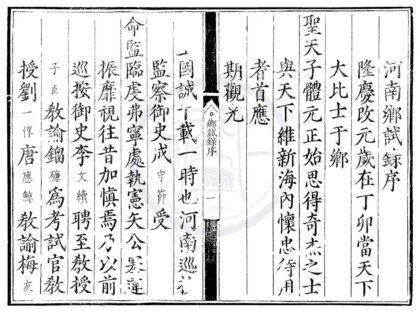 河南鄉試錄序
隆慶改元歲在丁卯當天下
大比士于鄉
聖天子體元正始思得奇杰之士
與天下維新海內懷忠待用
者首應
期觀光
鄉試錄序
國誠千載一時也河南巡
監察御史成守節受
命監臨虔弗寧處執憲矢公
振靡視往昔加慎焉乃以前
巡按御史李文續聘至教授
子臣教諭鎦為考試官教
授劉一惇唐應鯨教諭梅